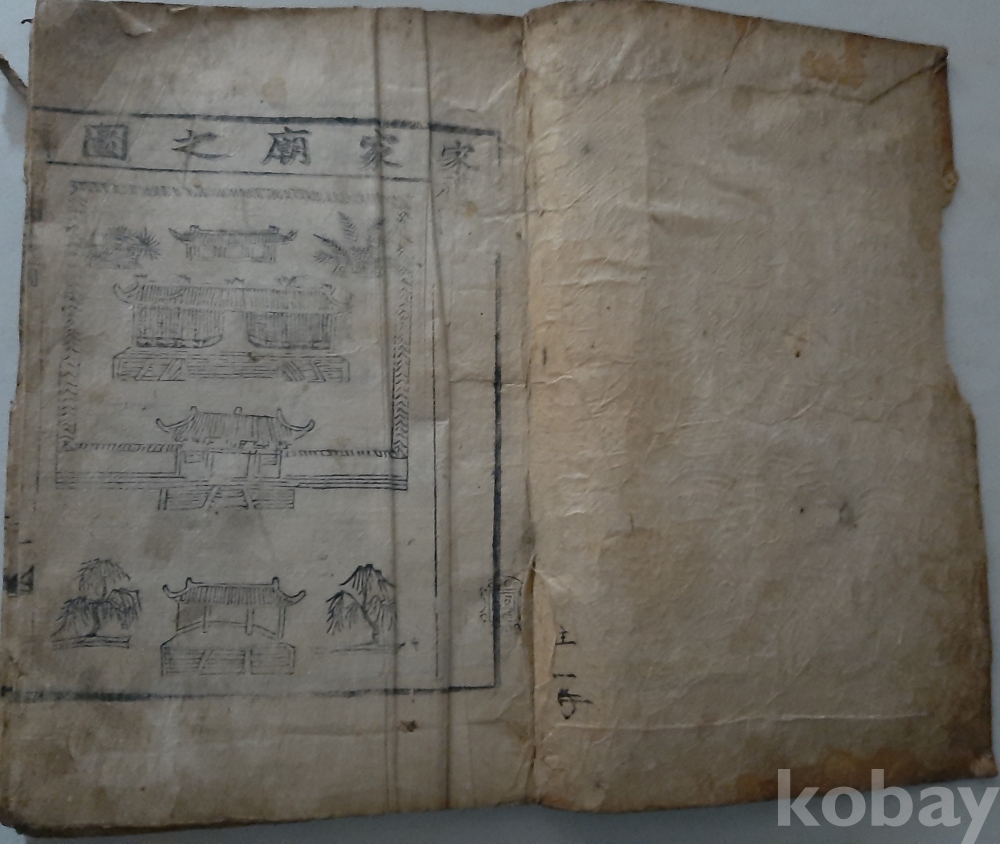 宋家廟之圖
kobay